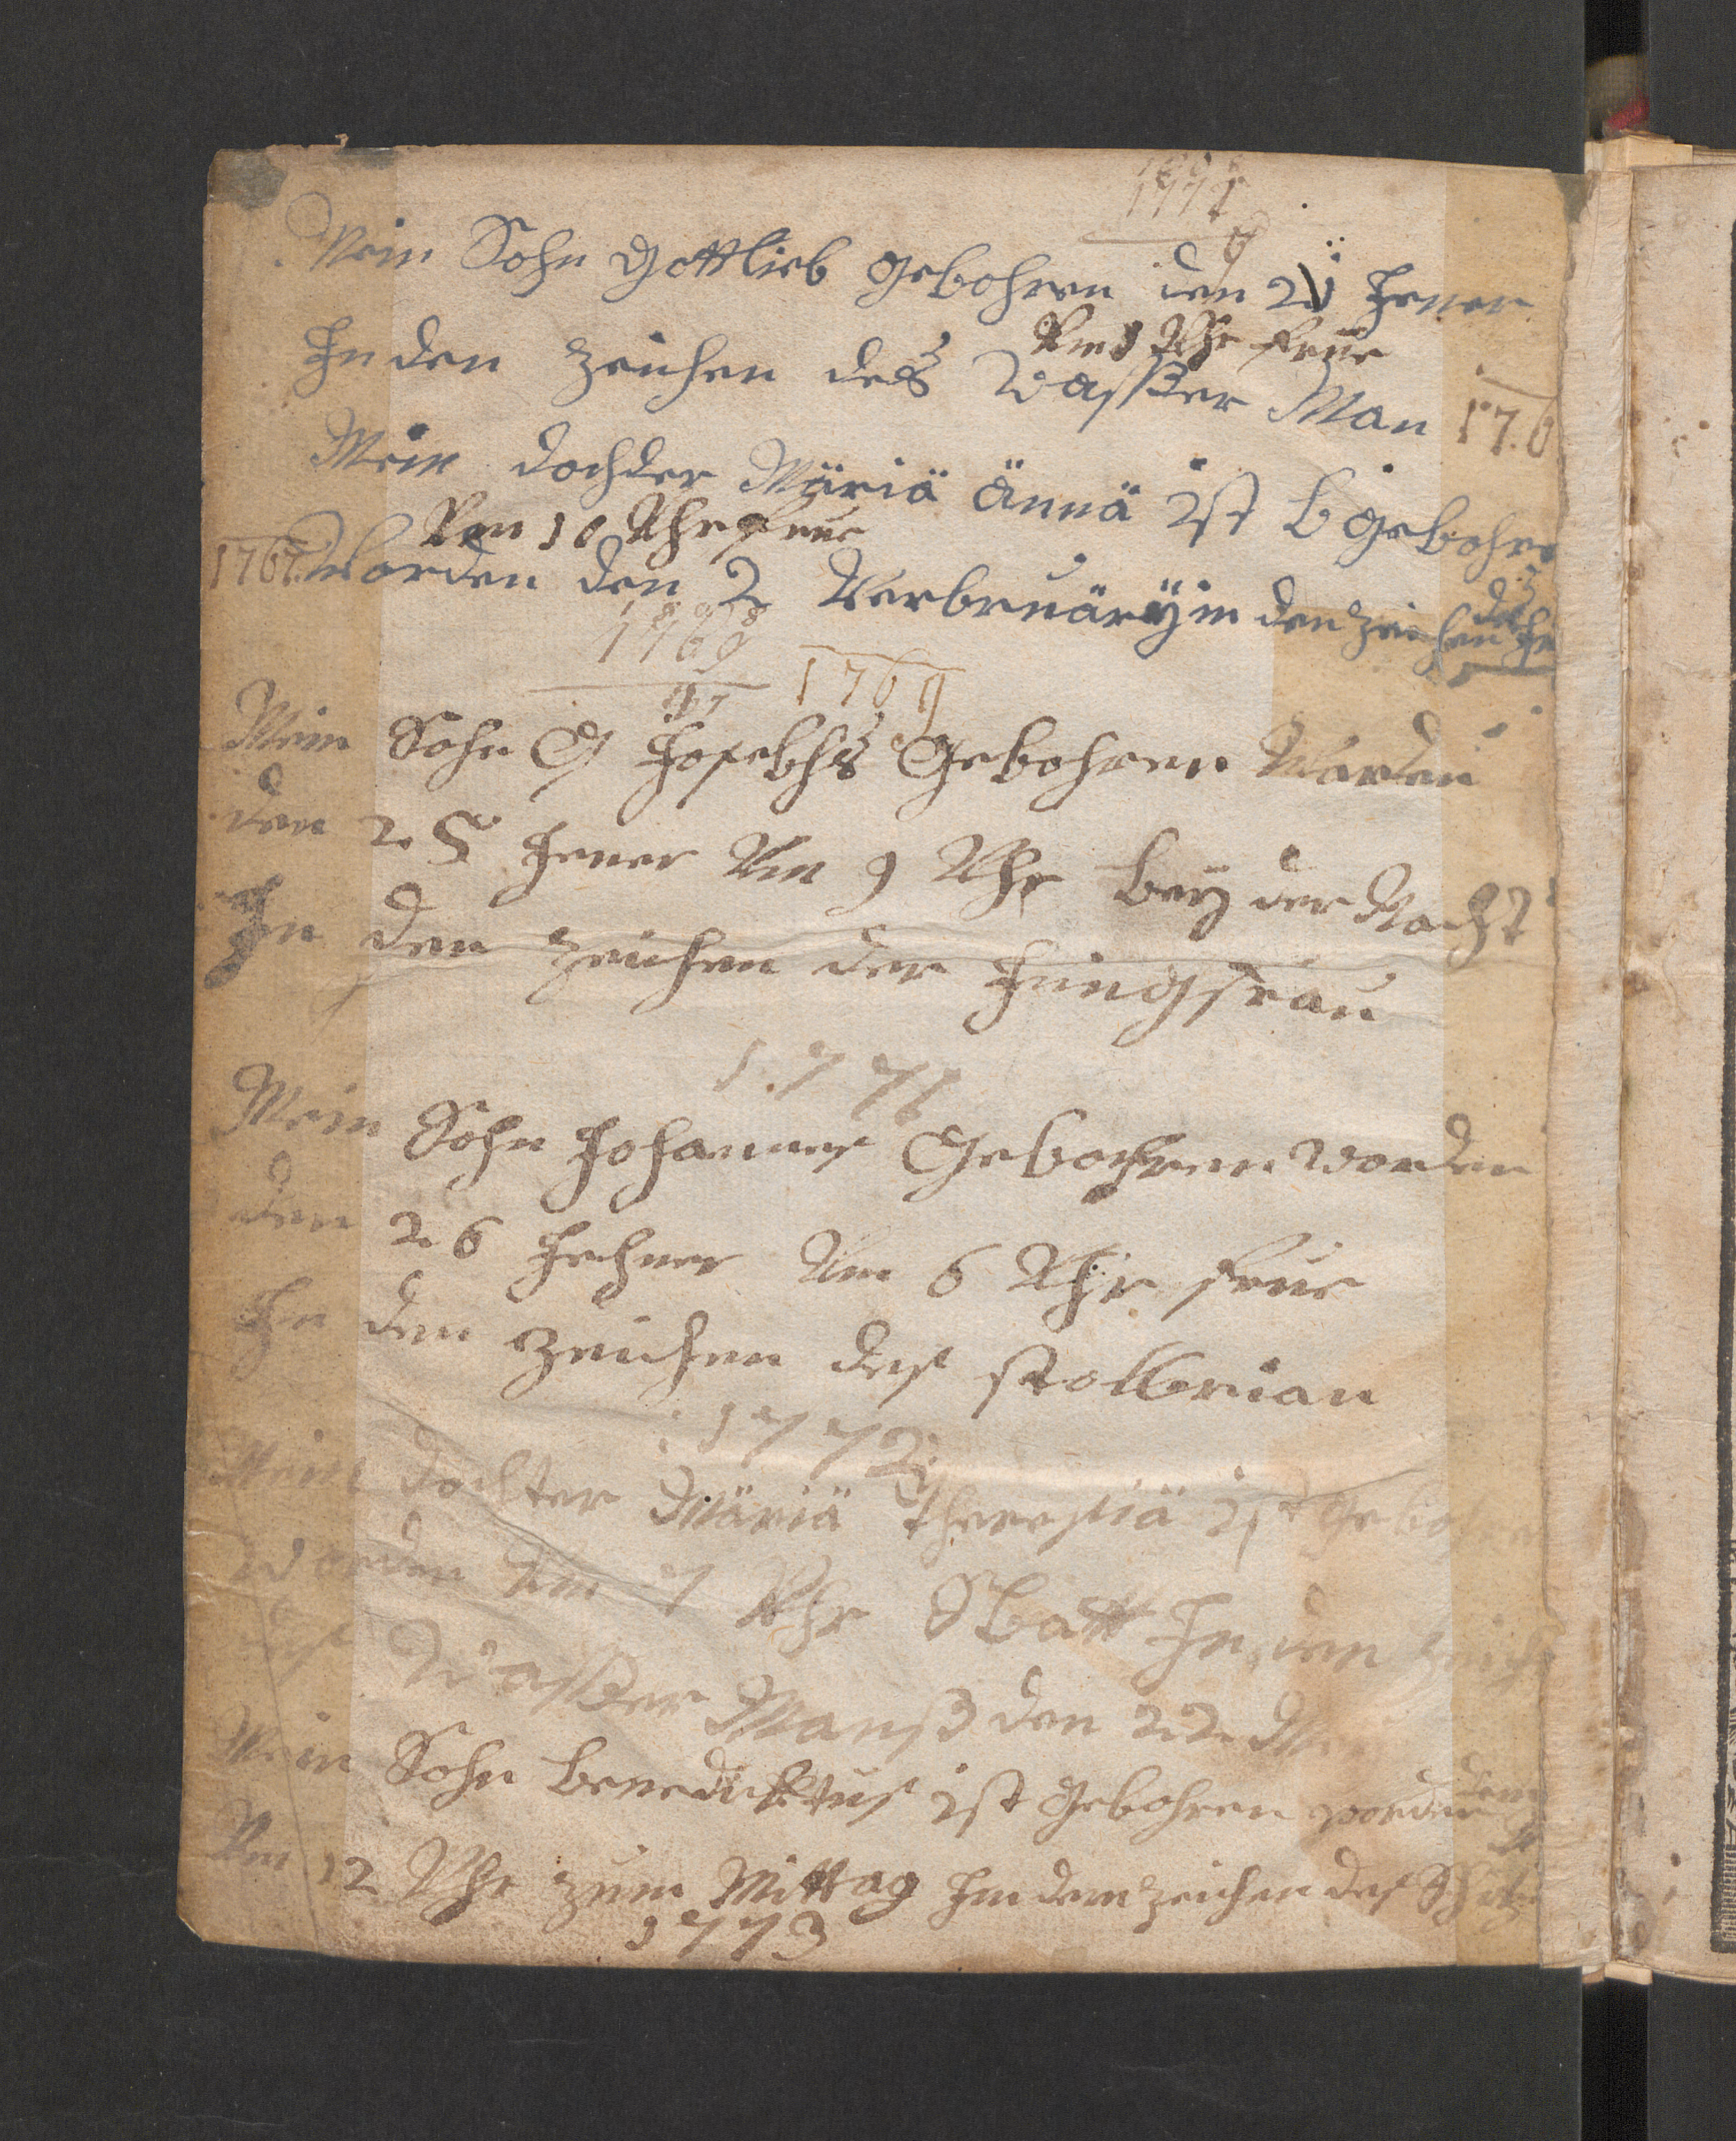 1771
Mein Sohn Gottlieb gebohren den 20 Jener
Um 8 Uhr frue
In den zeichen des Wasßer Man 176
Mein dochder Märiä Ännä ist b gebohre
Um 10 Uhr frue
1767 Worden den 2 Verbruäry in den zeichen des
1769
1769
Mein Sohn G Josebhs Gebohren Worden
den 25 Jener Um 9 Uhr bey der Nacht
In den zeichen der Jungfrau
1771
Mein Sohn Johannes Gebohren worden
den 26 Jechner Um 6 Uhr frue
In den zeichen des
1772
Mein dochter Märiä theresiä ist gebohren
Worden Um 7 Uhr Sbatt In den zeich
des Wasßer Manß den 22
Mein Sohn benedicktus ist gebohren worden
Um 12 Uhr zum Mittag In dem zeichen des
1773